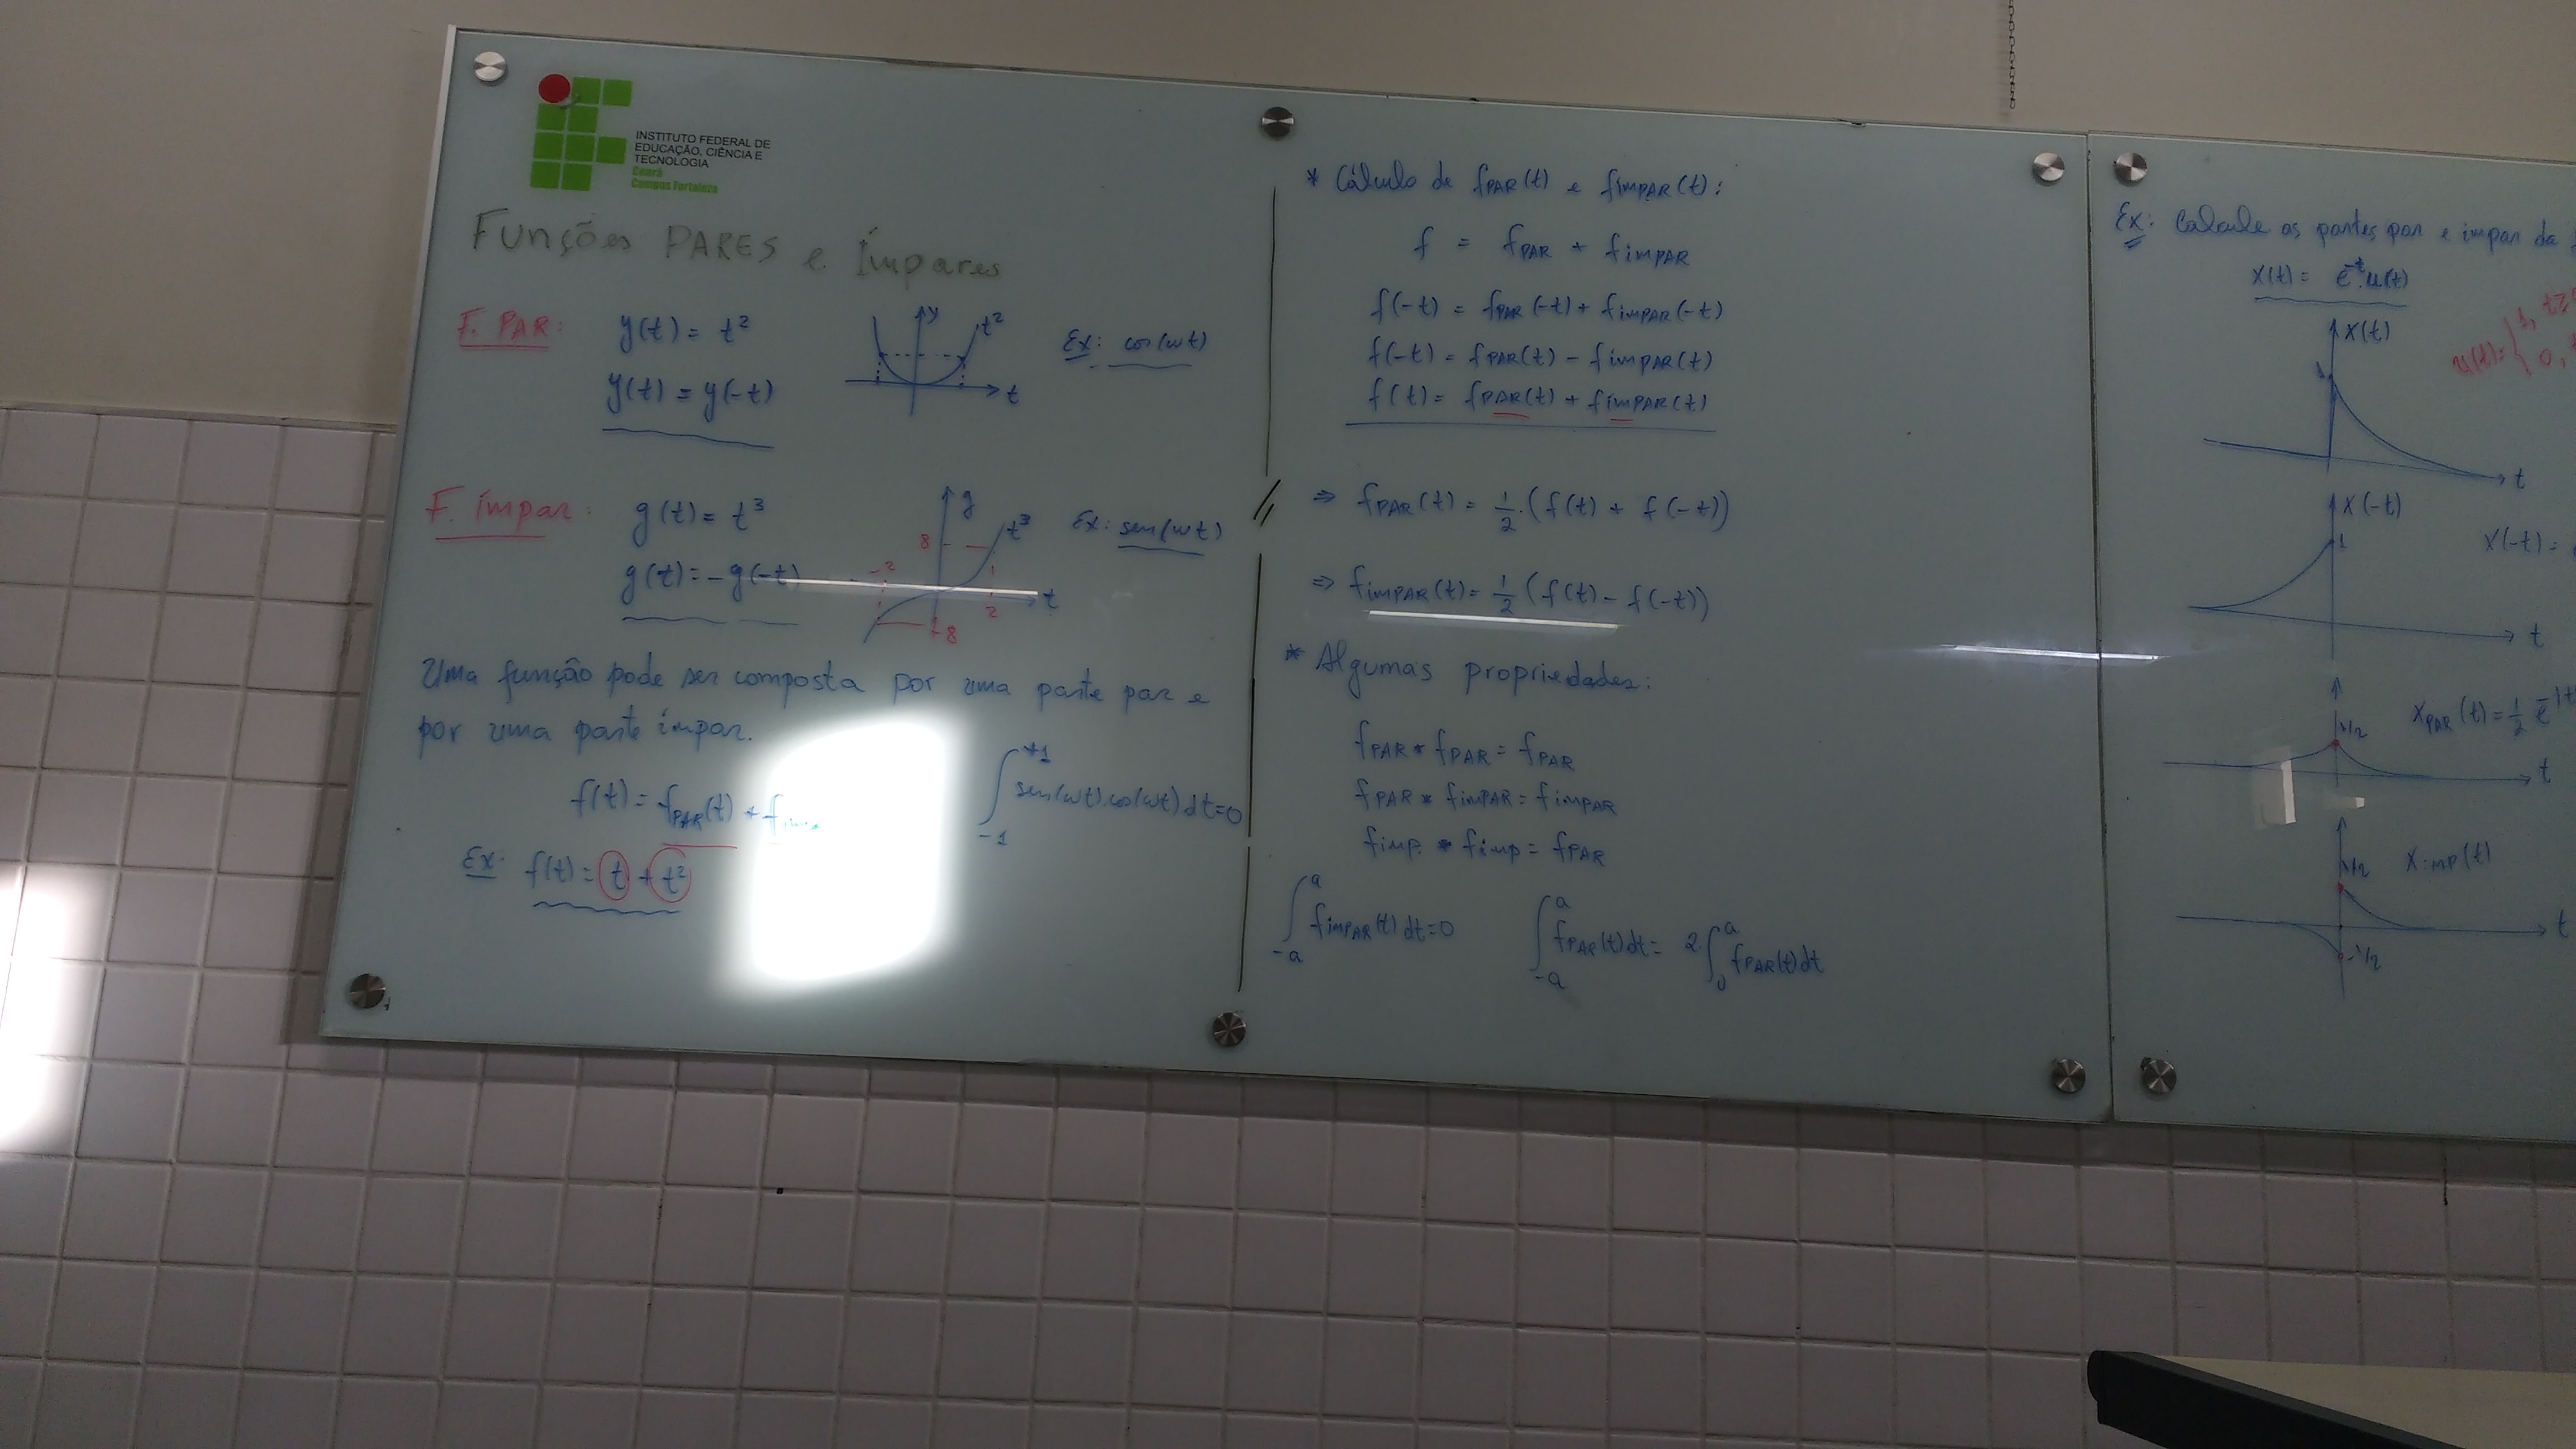 INSTITUTO FEDERAL DE
EDUCAÇÃO, CIÊNCIA E
TECNOLOGIA
Ceará
Campus Fortaleza
Funções PARES e Ímpares
F. PAR: y(t) = t²
y(t) = y(-t)
y
t²
t
Ex: cos(wt)
F. ímpar: g(t) = t³
g(t) = -g(-t)
g
t³
8
-2
2
-8
t
Ex: sen(wt)
Uma função pode ser composta por uma parte par e
por uma parte ímpar.
f(t) = fPAR(t) + f
∫₋₁⁺¹ sen(wt).cos(wt) dt = 0
Ex: f(t) = t + t²
* Cálculo de fPAR(t) e fímPAR(t):
f = fPAR + fímPAR
f(-t) = fPAR(-t) + fímPAR(-t)
f(-t) = fPAR(t) - fímPAR(t)
f(t) = fPAR(t) + fímPAR(t)
⇒ fPAR(t) = 1/2.(f(t) + f(-t))
⇒ fímPAR(t) = 1/2 (f(t) - f(-t))
* Algumas propriedades:
fPAR * fPAR = fPAR
fPAR * fímPAR = fímPAR
fímp. * fímp = fPAR
∫₋ₐᵃ fímPAR(t) dt = 0
∫₋ₐᵃ fPAR(t) dt = 2.∫₀ᵃ fPAR(t) dt
Ex: Calcule as partes par e ímpar da
x(t) = e⁻ᵗ.u(t)
u(t) = { 1, t≥
0,
x(t)
1
t
x(-t)
1
x(-t) =
t
xPAR(t) = 1/2 e
1/2
t
xímp(t)
1/2
t
-1/2